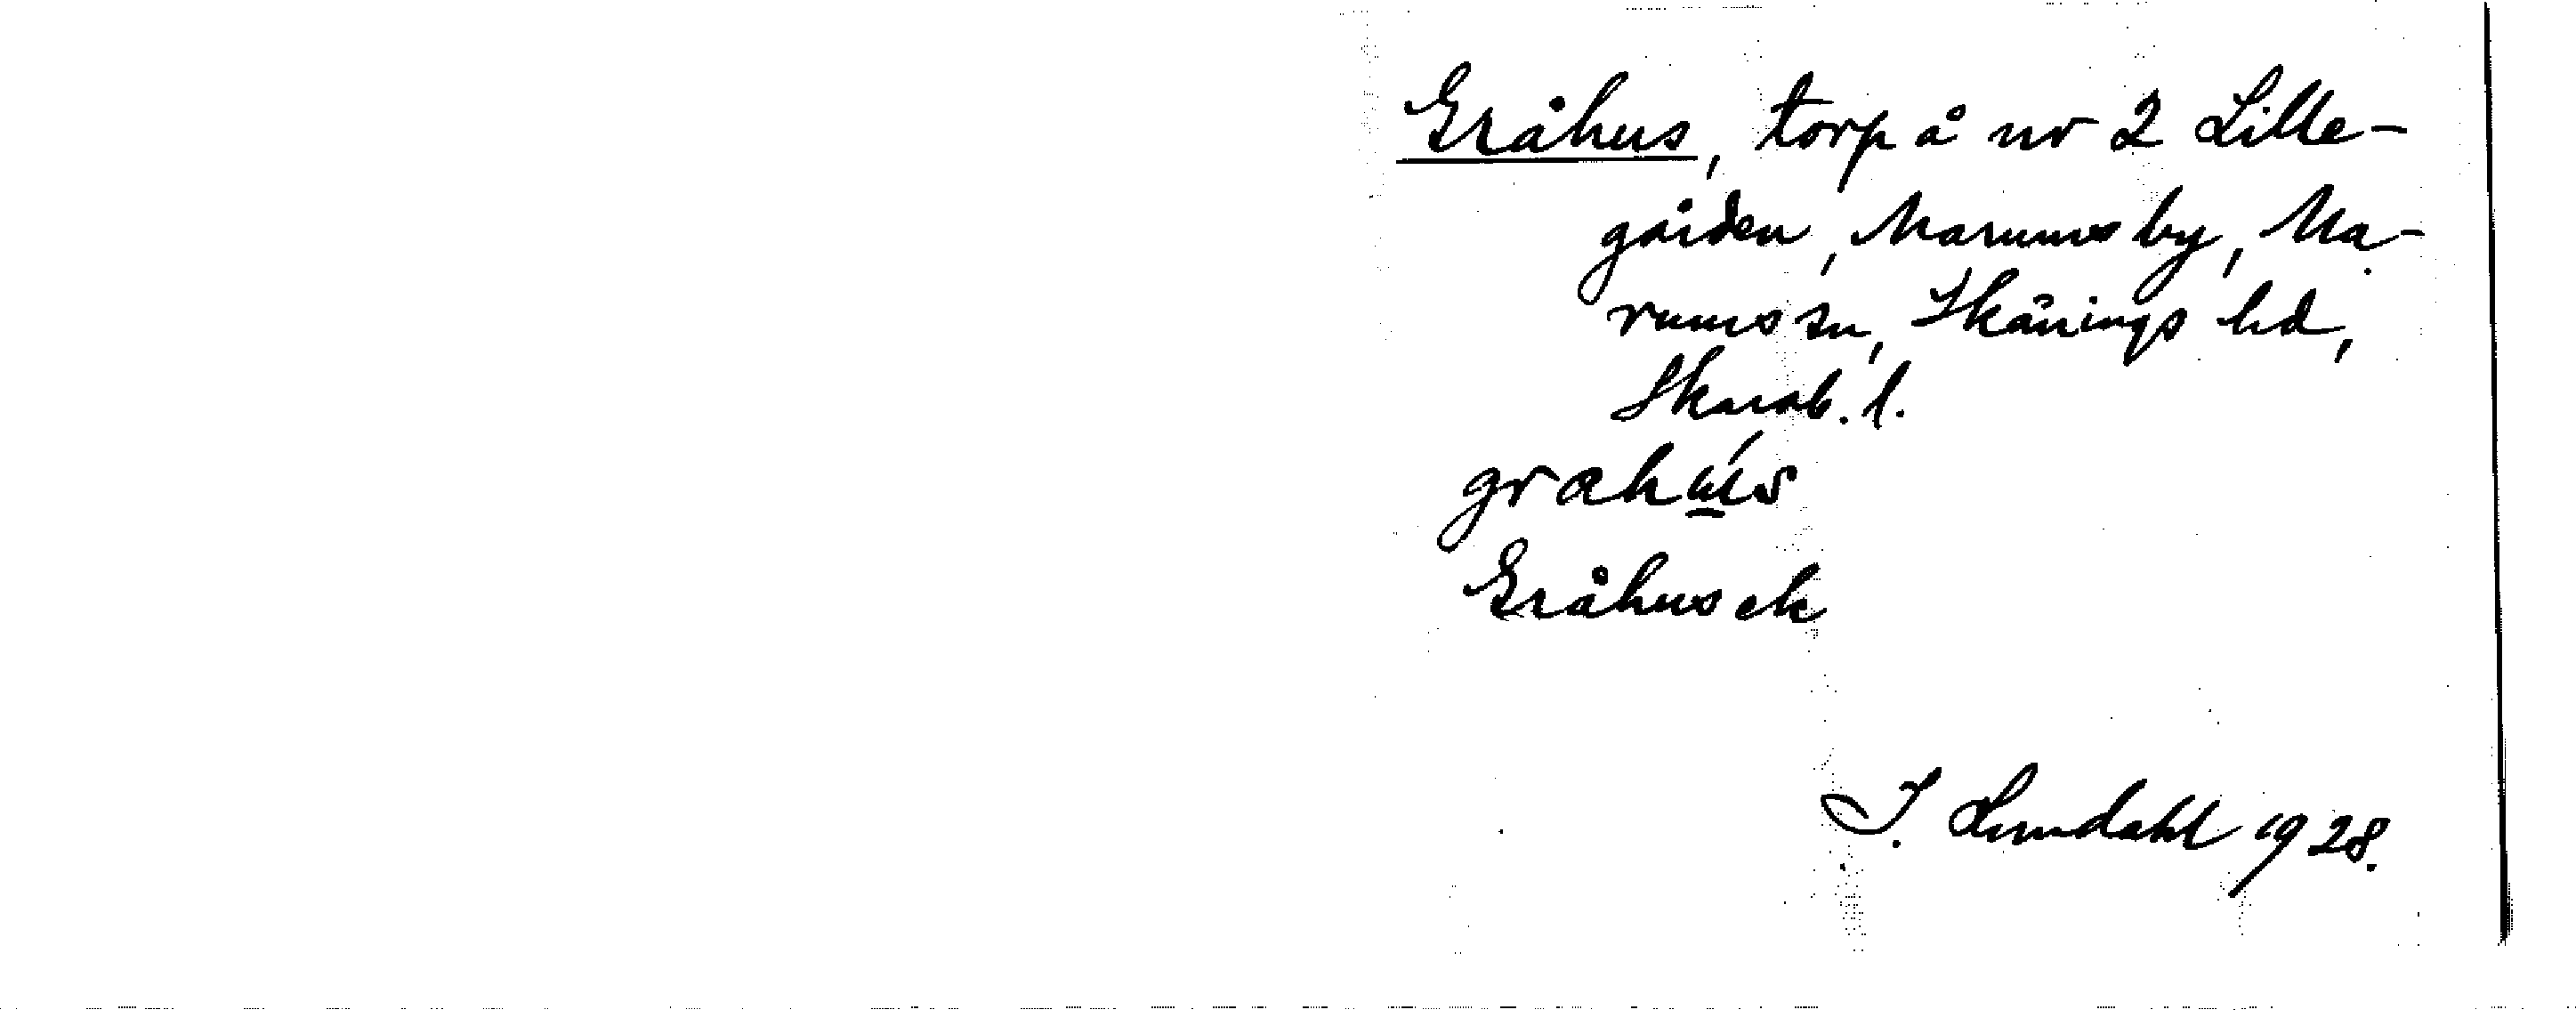 Gråhus, torp å nr 2 Lille-
gården, Marums by, Ma-
rums sn, Skånings hd,
Skarab. l.
grahú̲s
Gråhus ek
I. Lundahl 1928.